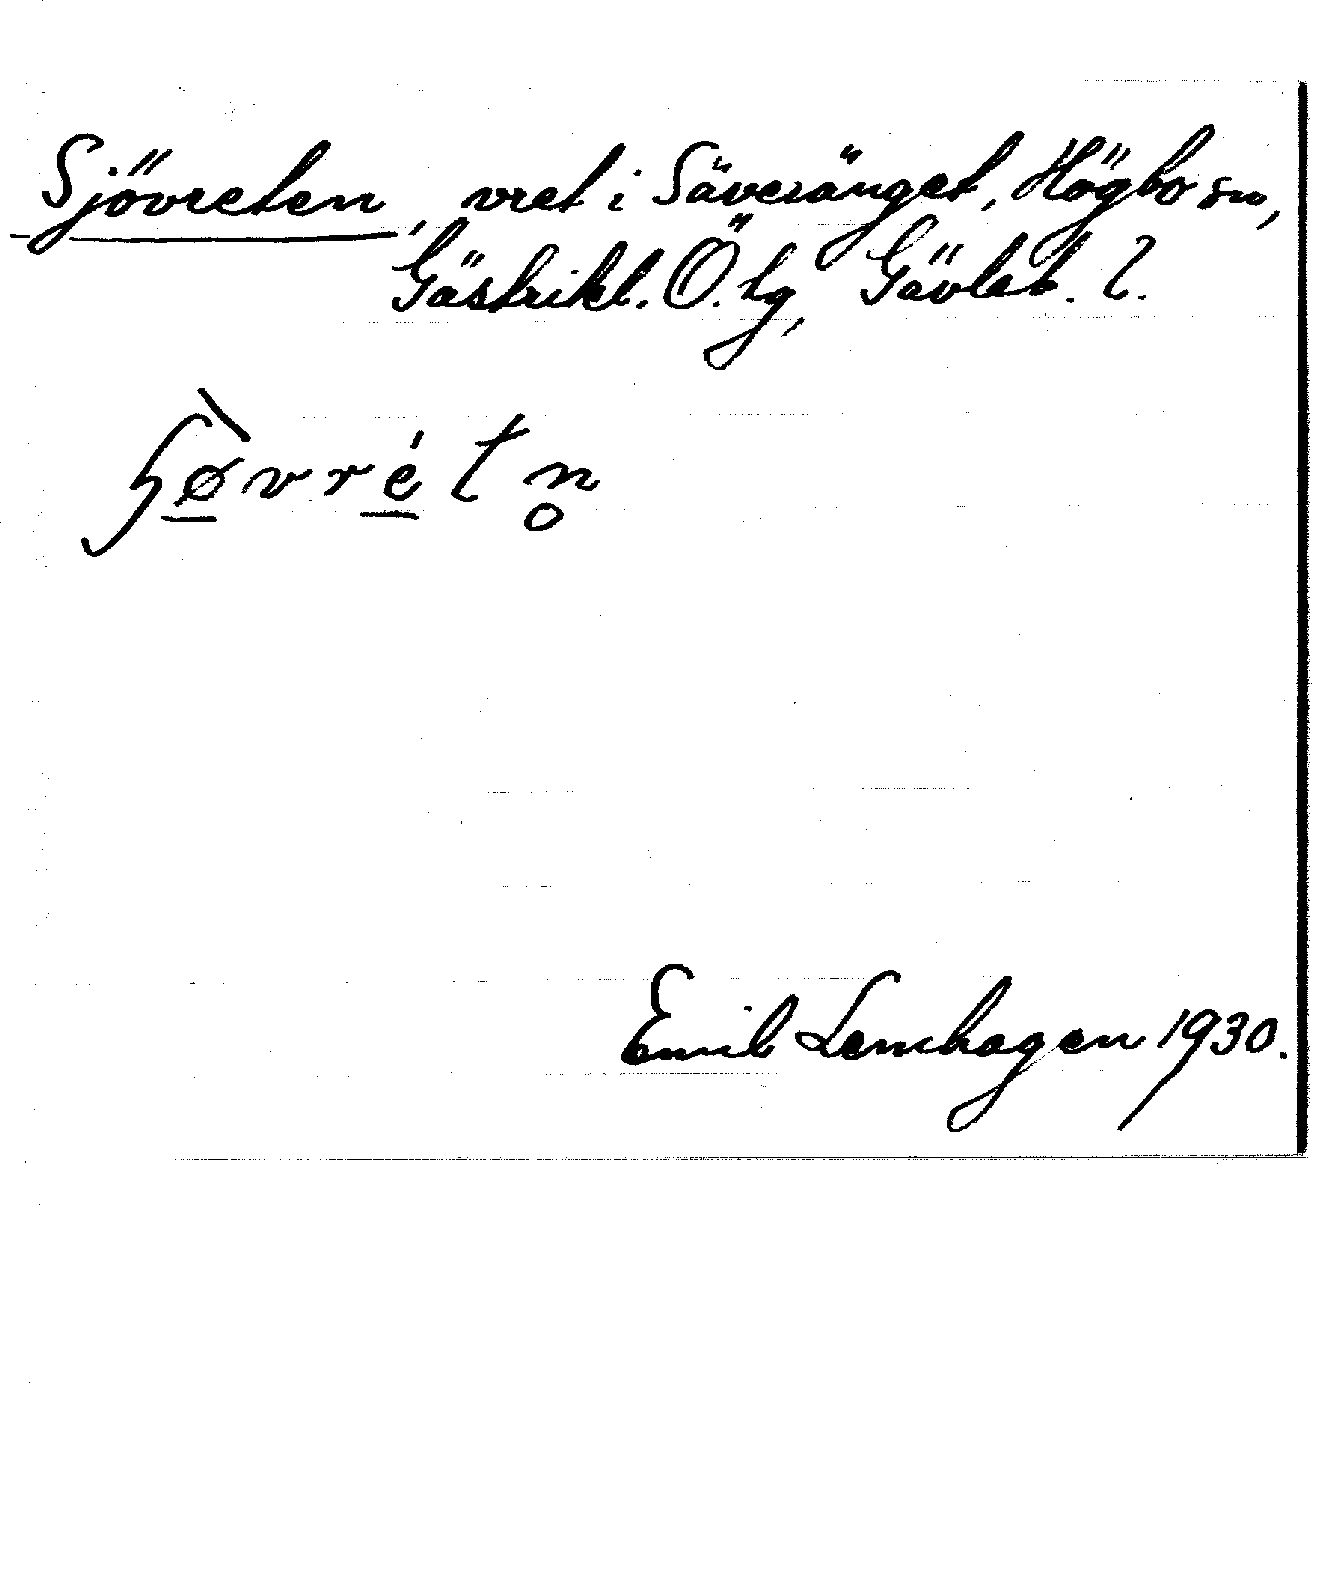 Sjövreten, vret i Säveränget, Högbo sn,
Gästrikl. Ö. tg, Gävleb. l.
ʃø̀vrétn̥
Emil Lemhagen 1930.